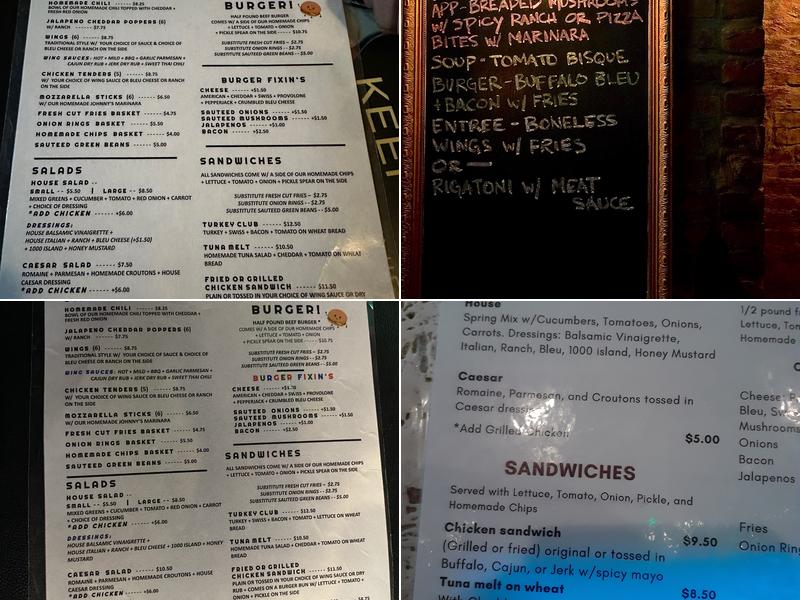 HOMEMADE CHILI ------ $8.25
BOWL OF OUR HOMEMADE CHILI TOPPED WITH CHEDDAR +
FRESH RED ONION
JALAPENO CHEDDAR POPPERS (6)
W/ RANCH ------ $7.75
WINGS (6) ------ $8.75
TRADITIONAL STYLE W/ YOUR CHOICE OF SAUCE & CHOICE OF
BLEU CHEESE OR RANCH ON THE SIDE
WING SAUCES: HOT + MILD + BBQ + GARLIC PARMESAN +
CAJUN DRY RUB + JERK DRY RUB + SWEET THAI CHILI
CHICKEN TENDERS (5) ------ $8.75
W/ YOUR CHOICE OF SAUCE AND BLEU CHEESE OR RANCH
ON THE SIDE
MOZZARELLA STICKS (6) ------ $6.50
W/ OUR HOMEMADE JOHNNY'S MARINARA
FRESH CUT FRIES BASKET ------ $4.75
ONION RINGS BASKET ------ $5.50
HOMEMADE CHIPS BASKET ------ $4.00
SAUTEED GREEN BEANS ------ $5.00
SALADS
HOUSE SALAD --
SMALL -- $5.50 | LARGE -- $8.50
MIXED GREENS + CUCUMBER + TOMATO + RED ONION + CARROT
+ CHOICE OF DRESSING
*ADD CHICKEN ------ +$6.00
DRESSINGS:
HOUSE BALSAMIC VINAIGRETTE +
HOUSE ITALIAN + RANCH + BLEU CHEESE (+$1.50)
+ 1000 ISLAND + HONEY MUSTARD
CAESAR SALAD ------ $7.50
ROMAINE + PARMESAN + HOMEMADE CROUTONS + HOUSE
CAESAR DRESSING
*ADD CHICKEN ------ +$6.00
BURGER!
HALF POUND BEEF BURGER
COMES W/ A SIDE OF OUR HOMEMADE CHIPS
+ LETTUCE + TOMATO + ONION
+ PICKLE SPEAR ON THE SIDE ------ $10.75
SUBSTITUTE FRESH CUT FRIES -- $2.75
SUBSTITUTE ONION RINGS -- $2.75
SUBSTITUTE SAUTEED GREEN BEANS -- $5.00
BURGER FIXIN'S
CHEESE ------ +$1.50
AMERICAN + CHEDDAR + SWISS + PROVOLONE
+ PEPPERJACK + CRUMBLED BLEU CHEESE
SAUTEED ONIONS ------ +$1.50
SAUTEED MUSHROOMS ------ +$1.50
JALAPENOS ------ +$1.00
BACON ------ +$2.50
SANDWICHES
ALL SANDWICHES COME W/ A SIDE OF OUR HOMEMADE CHIPS
+ LETTUCE + TOMATO + ONION + PICKLE SPEAR ON THE SIDE
SUBSTITUTE FRESH CUT FRIES -- $2.75
SUBSTITUTE ONION RINGS -- $2.75
SUBSTITUTE SAUTEED GREEN BEANS -- $5.00
TURKEY CLUB ------ $12.50
TURKEY + SWISS + BACON + TOMATO ON WHEAT BREAD
TUNA MELT ------ $10.50
HOMEMADE TUNA SALAD + CHEDDAR + TOMATO ON WHEAT
BREAD
FRIED OR GRILLED
CHICKEN SANDWICH ------ $11.50
PLAIN OR TOSSED IN YOUR CHOICE OF WING SAUCE OR DRY
APP-BREADED MUSHROOMS
W/ SPICY RANCH OR PIZZA
BITES W/ MARINARA
SOUP-TOMATO BISQUE
BURGER-BUFFALO BLEU
+BACON W/ FRIES
ENTREE-BONELESS
WINGS W/ FRIES
OR —
RIGATONI W/ MEAT
SAUCE
HOMEMADE CHILI ------ $8.25
BOWL OF OUR HOMEMADE CHILI TOPPED WITH CHEDDAR +
FRESH RED ONION
JALAPENO CHEDDAR POPPERS (6)
W/ RANCH ------ $7.75
WINGS (6) ------ $8.75
TRADITIONAL STYLE W/ YOUR CHOICE OF SAUCE & CHOICE OF
BLEU CHEESE OR RANCH ON THE SIDE
WING SAUCES: HOT + MILD + BBQ + GARLIC PARMESAN +
CAJUN DRY RUB + JERK DRY RUB + SWEET THAI CHILI
CHICKEN TENDERS (5) ------ $8.75
W/ YOUR CHOICE OF SAUCE AND BLEU CHEESE OR RANCH
ON THE SIDE
MOZZARELLA STICKS (6) ------ $6.50
W/ OUR HOMEMADE JOHNNY'S MARINARA
FRESH CUT FRIES BASKET ------ $4.75
ONION RINGS BASKET ------ $5.50
HOMEMADE CHIPS BASKET ------ $4.00
SAUTEED GREEN BEANS ------ $5.00
SALADS
HOUSE SALAD --
SMALL -- $5.50 | LARGE -- $8.50
MIXED GREENS + CUCUMBER + TOMATO + RED ONION + CARROT
+ CHOICE OF DRESSING
*ADD CHICKEN ------ +$6.00
DRESSINGS:
HOUSE BALSAMIC VINAIGRETTE +
HOUSE ITALIAN + RANCH + BLEU CHEESE + 1000 ISLAND + HONEY
MUSTARD
CAESAR SALAD ------ $10.50
ROMAINE + PARMESAN + HOMEMADE CROUTONS + HOUSE
CAESAR DRESSING
*ADD CHICKEN ------ +$6.00
BURGER!
HALF POUND BEEF BURGER *
COMES W/ A SIDE OF OUR HOMEMADE CHIPS
+ LETTUCE + TOMATO + ONION
+ PICKLE SPEAR ON THE SIDE ------ $10.75
SUBSTITUTE FRESH CUT FRIES -- $2.75
SUBSTITUTE ONION RINGS -- $2.75
SUBSTITUTE SAUTEED GREEN BEANS -- $5.00
BURGER FIXIN'S
CHEESE ------ +$1.50
AMERICAN + CHEDDAR + SWISS + PROVOLONE
+ PEPPERJACK + CRUMBLED BLEU CHEESE
SAUTEED ONIONS ------ +$1.50
SAUTEED MUSHROOMS ------ +$1.50
JALAPENOS ------ +$1.00
BACON ------ +$2.50
SANDWICHES
ALL SANDWICHES COME W/ A SIDE OF OUR HOMEMADE CHIPS
+ LETTUCE + TOMATO + ONION + PICKLE SPEAR ON THE SIDE
SUBSTITUTE FRESH CUT FRIES -- $2.75
SUBSTITUTE ONION RINGS -- $2.75
SUBSTITUTE SAUTEED GREEN BEANS -- $5.00
TURKEY CLUB ------ $12.50
TURKEY + SWISS + BACON + LETTUCE + TOMATO ON WHEAT
BREAD
TUNA MELT ------ $10.50
HOMEMADE TUNA SALAD + CHEDDAR + TOMATO ON WHEAT
BREAD
FRIED OR GRILLED
CHICKEN SANDWICH ------ $11.50
PLAIN OR TOSSED IN YOUR CHOICE OF WING SAUCE OR DRY
RUB + COMES ON A BURGER BUN W/ LETTUCE + TOMATO +
House
Spring Mix w/Cucumbers, Tomatoes, Onions,
Carrots. Dressings: Balsamic Vinaigrette,
Italian, Ranch, Bleu, 1000 island, Honey Mustard
Caesar
Romaine, Parmesan, and Croutons tossed in
Caesar dressing
*Add Grilled Chicken $5.00
SANDWICHES
Served with Lettuce, Tomato, Onion, Pickle, and
Homemade Chips
Chicken sandwich $9.50
(Grilled or fried) original or tossed in
Buffalo, Cajun, or Jerk w/spicy mayo
Tuna melt on wheat $8.50
1/2 pound
Lettuce, Tom
Homemade
Cheese:
Bleu, Sw
Mushrooms
Onions
Bacon
Jalapenos
Fries
Onion Ring